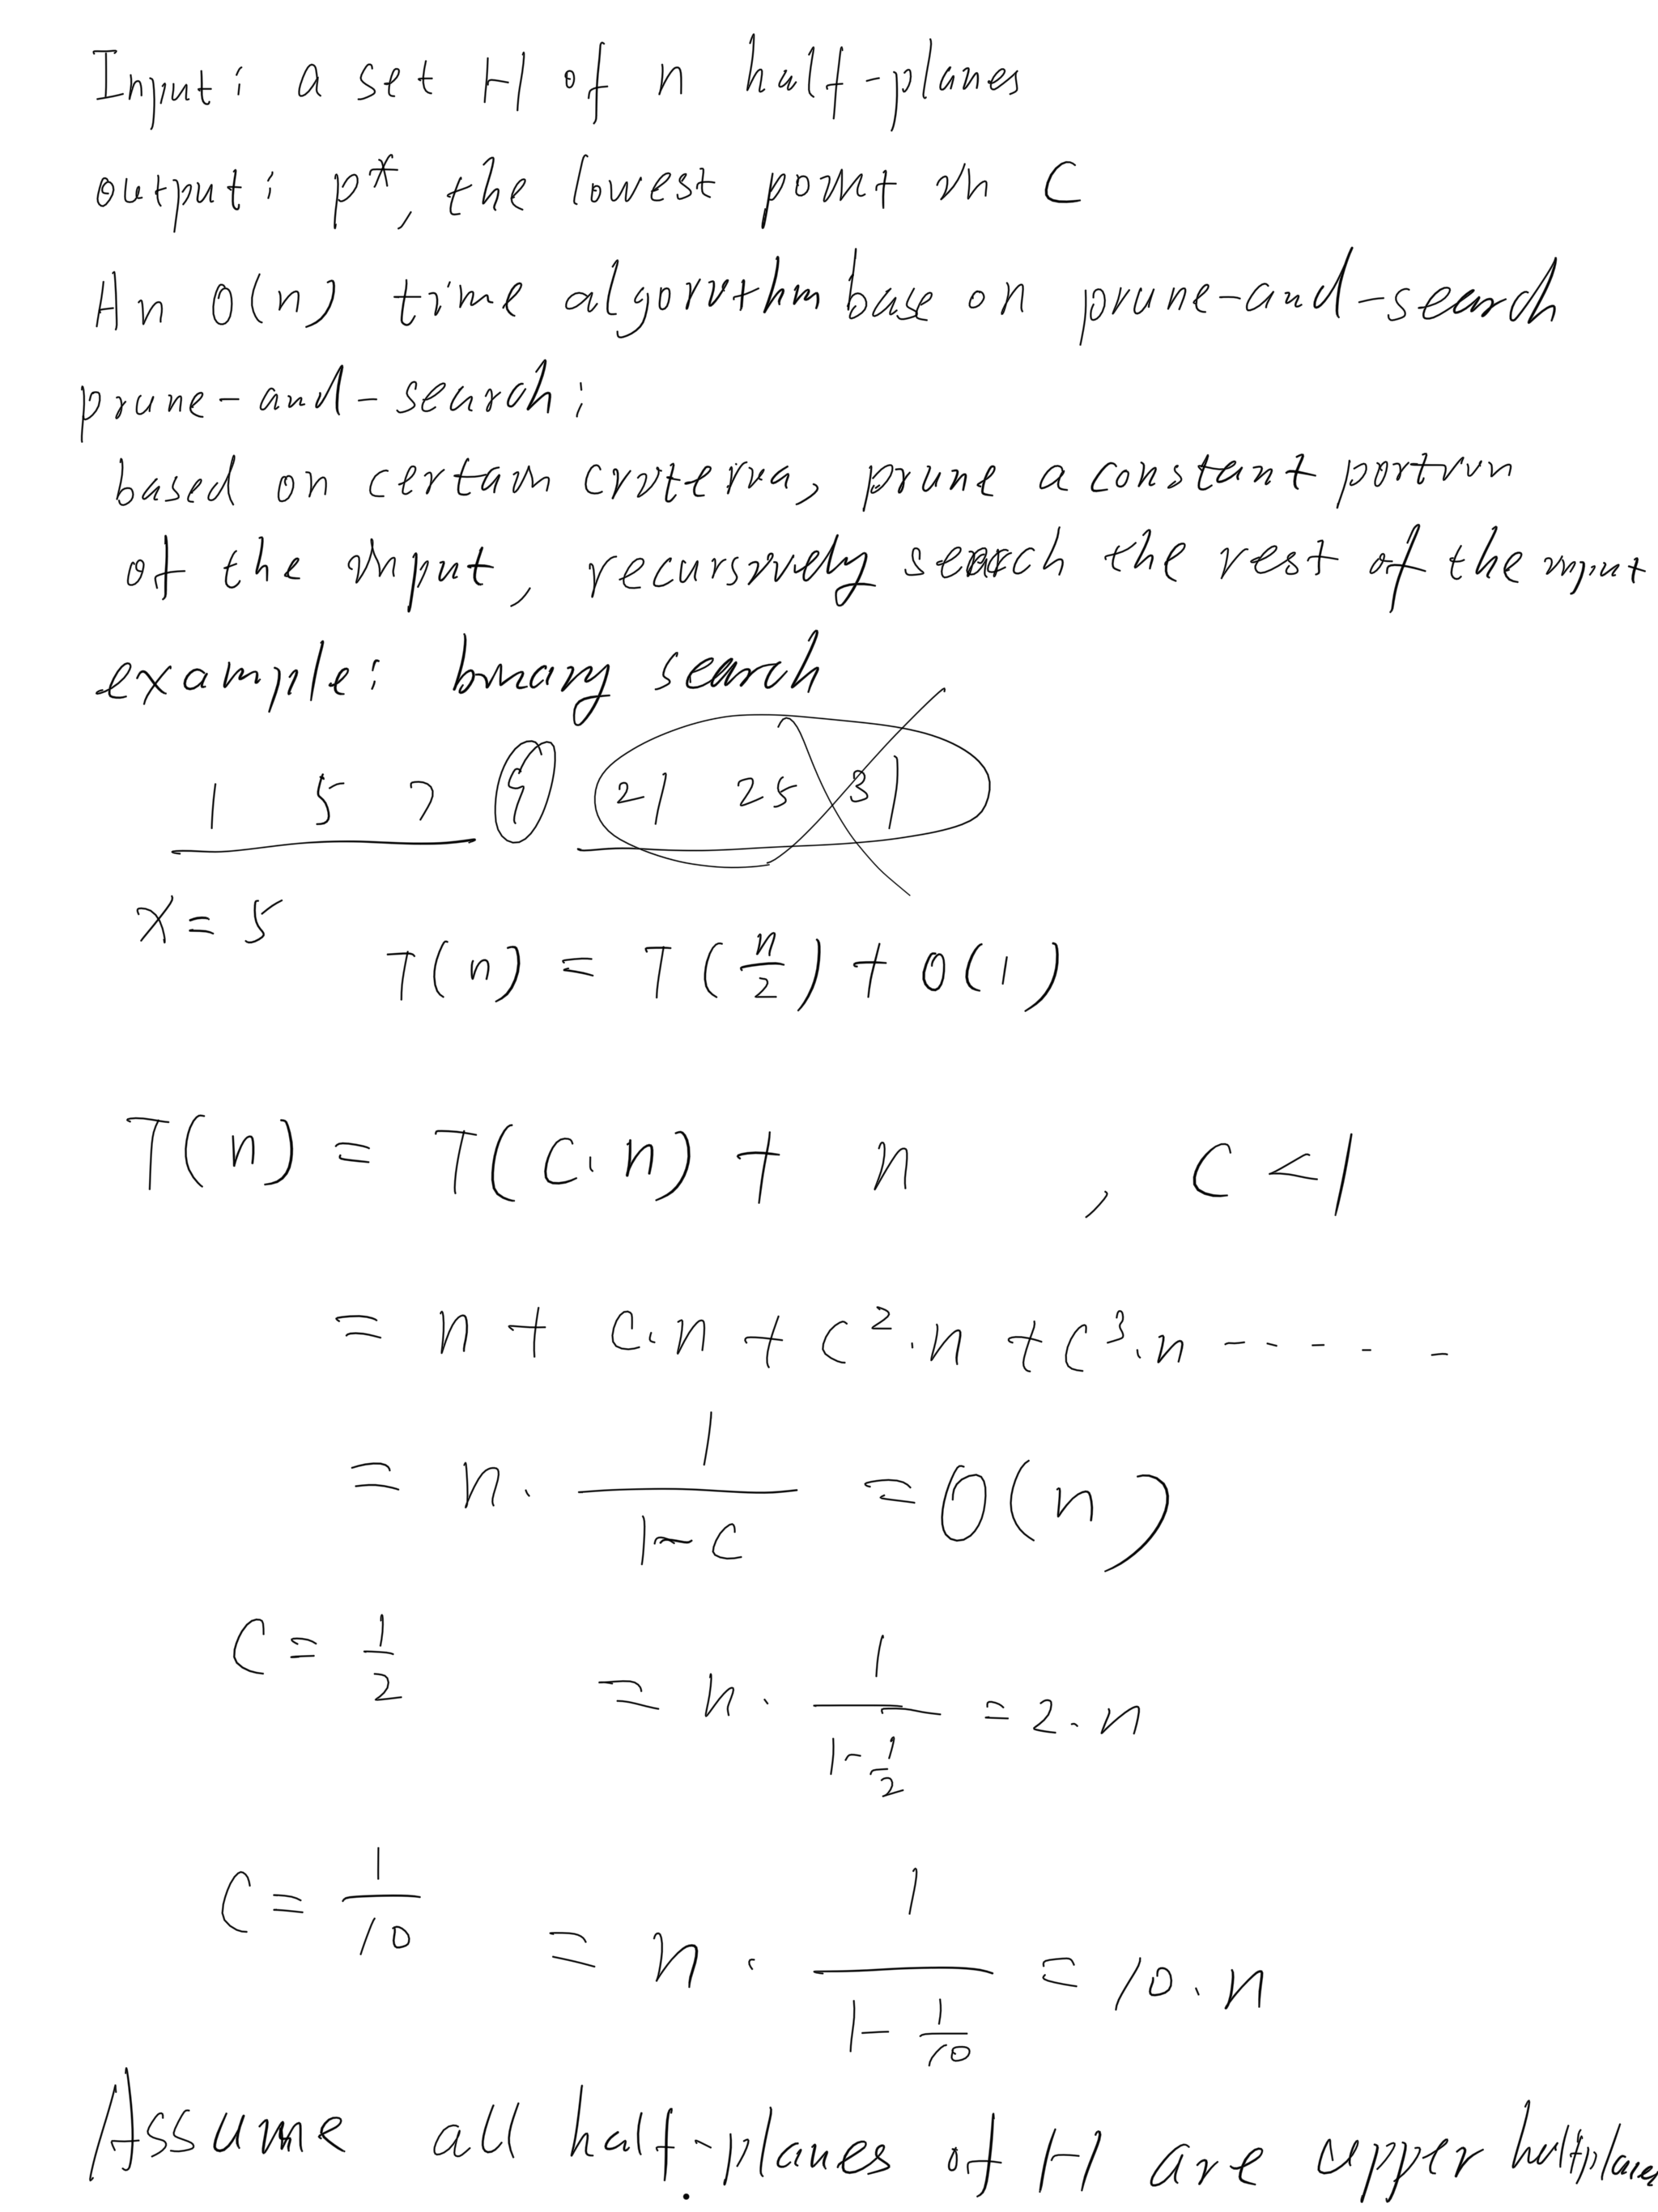 Input: a set H of n half-planes
output: p*, the lowest point in C
An O(n) time algorithm base on prune-and-search
prune-and-search:
based on certain criteria, prune a constant portion
of the input, recursively search the rest of the input
example: binary search
1 5 7 9 21 25 31
x = 5
T(n) = T(n/2) + O(1)
T(n) = T(c·n) + n , c < 1
= n + c·n + c²·n + c³·n - - - - - -
= n · 1/(1-c) = O(n)
c = 1/2 = n · 1/(1-1/2) = 2·n
c = 1/10 = n · 1/(1-1/10) = 10·n
Assume all half-planes of H are upper halfplanes